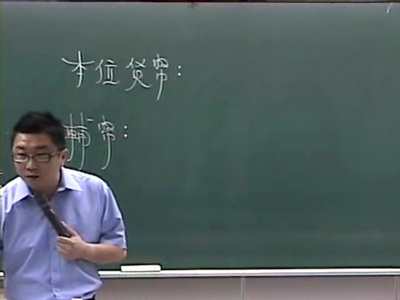 本位貨幣：
輔幣：